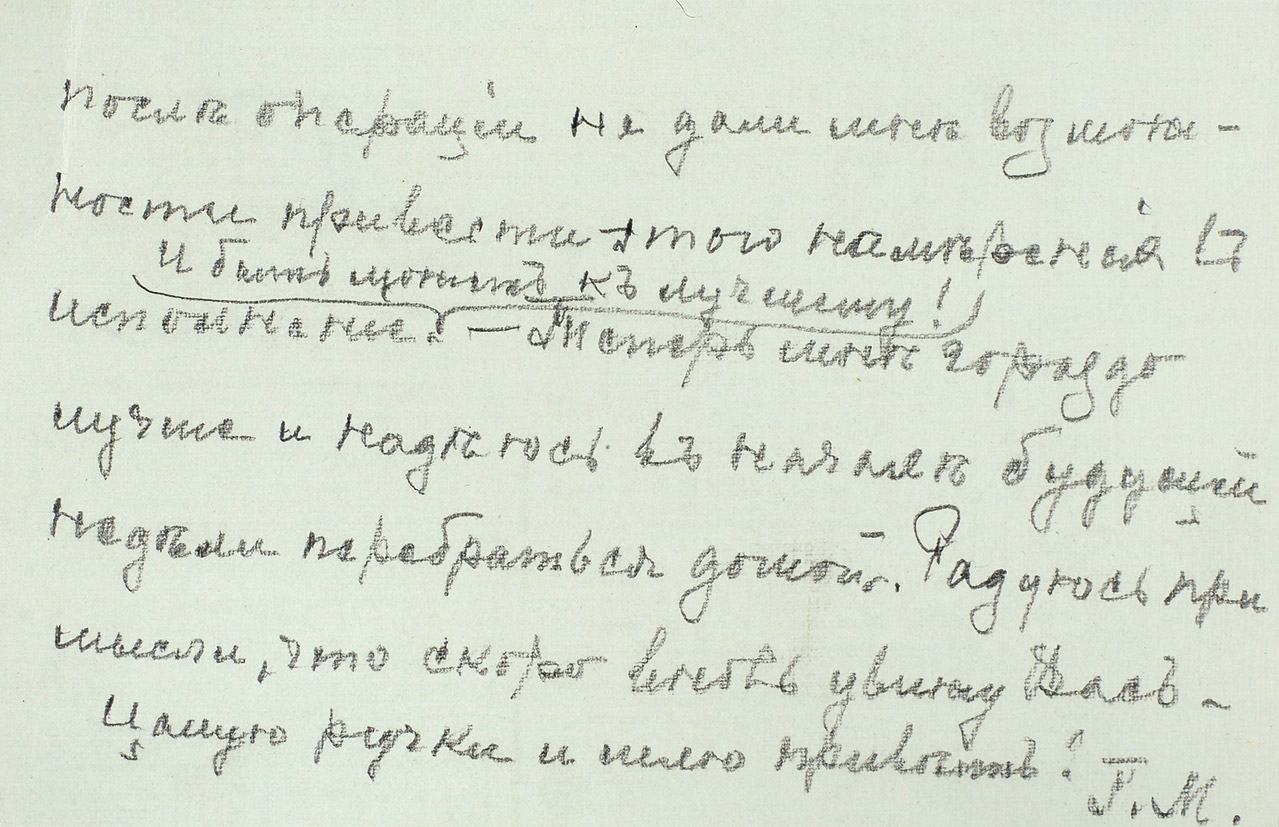 послѣ операціи не дали мнѣ возмож-
ности привести этого намѣренія въ
И быть можетъ къ лучшему!
исполненіе. — Теперь мнѣ гораздо
лучше и надѣюсь въ началѣ будущей
недѣли перебраться домой. Радуюсь при
мысли, что скоро вновь увижу Васъ –
Цалую ручки и шлю привѣтъ!
Г. М.